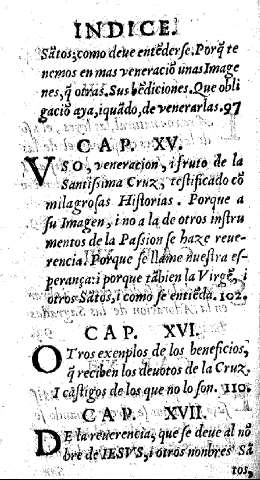 INDICE.
Sãtos; como deve entẽderse. Porq̃ te
nemos en mas veneraciõ unas Image
nes, q̃ otras. Sus bẽdiciones. Que obli
gaciõ aya, i quãdo, de venerarlas. 97
CAP. XV.
USO, veneracion, i fruto de la
Santissima Cruz, testificado cõ
milagrosas Historias. Porque a
su Imagen, i no a la de otros instru
mentos de la Passion se haze reue-
rencia. Porque se llame nuestra es-
perança: i porque tãbien la Virgẽ, i
otros Sãtos, i como se entiẽda. 102.
CAP. XVI.
OTros exenplos de los beneficios,
q̃ reciben los deuotos de la Cruz.
I castigos de los que no lo son. 110.
CAP. XVII.
DE la reuerencia, que se deue al nõ
bre de IESVS, i otros nonbres Sã
tos,